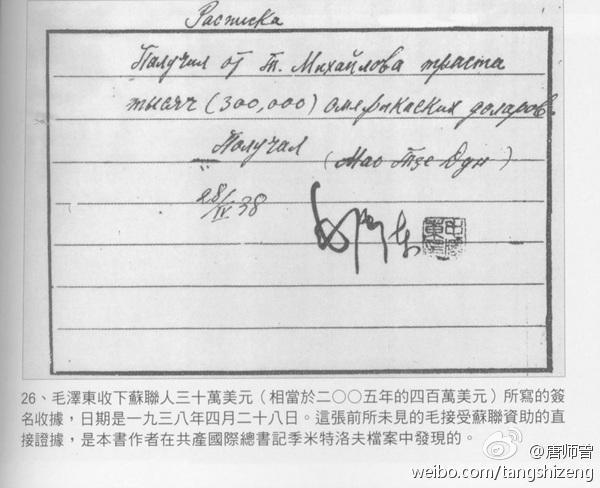 Расписка
Палучил от т. Михайлова триста
тысяч (300,000) американских доларов.
Получал (Мао Тзе Дун)
28/IV 38
毛澤東
26、毛澤東收下蘇聯人三十萬美元（相當於二〇〇五年的四百萬美元）所寫的簽
名收據，日期是一九三八年四月二十八日。這張前所未見的毛接受蘇聯資助的直
接證據，是本書作者在共產國際總書記季米特洛夫檔案中發現的。
@唐师曾
weibo.com/tangshizeng